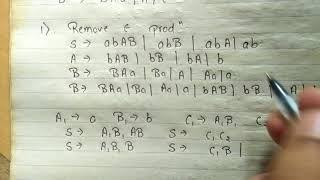 1). Remove ε prodⁿ
S → abAB | abB | abA | ab
A → bAB | bB | bA | b
B → BAa | Ba | A | Aa | a
B → BAa | Ba | Aa | a | bAB | bB
A₁ → a B₁ → b C₁ →
S → A₁B₁AB S → C₁C₂
S → A₁B₁B S → C₁B |